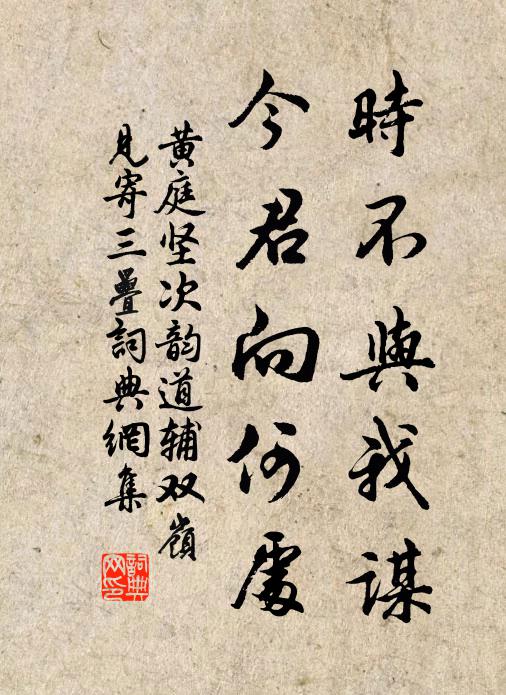 時不與我謀
今君向何處
黄庭坚次韵道辅双嶺
見寄三疊詞典網集
詞典網印